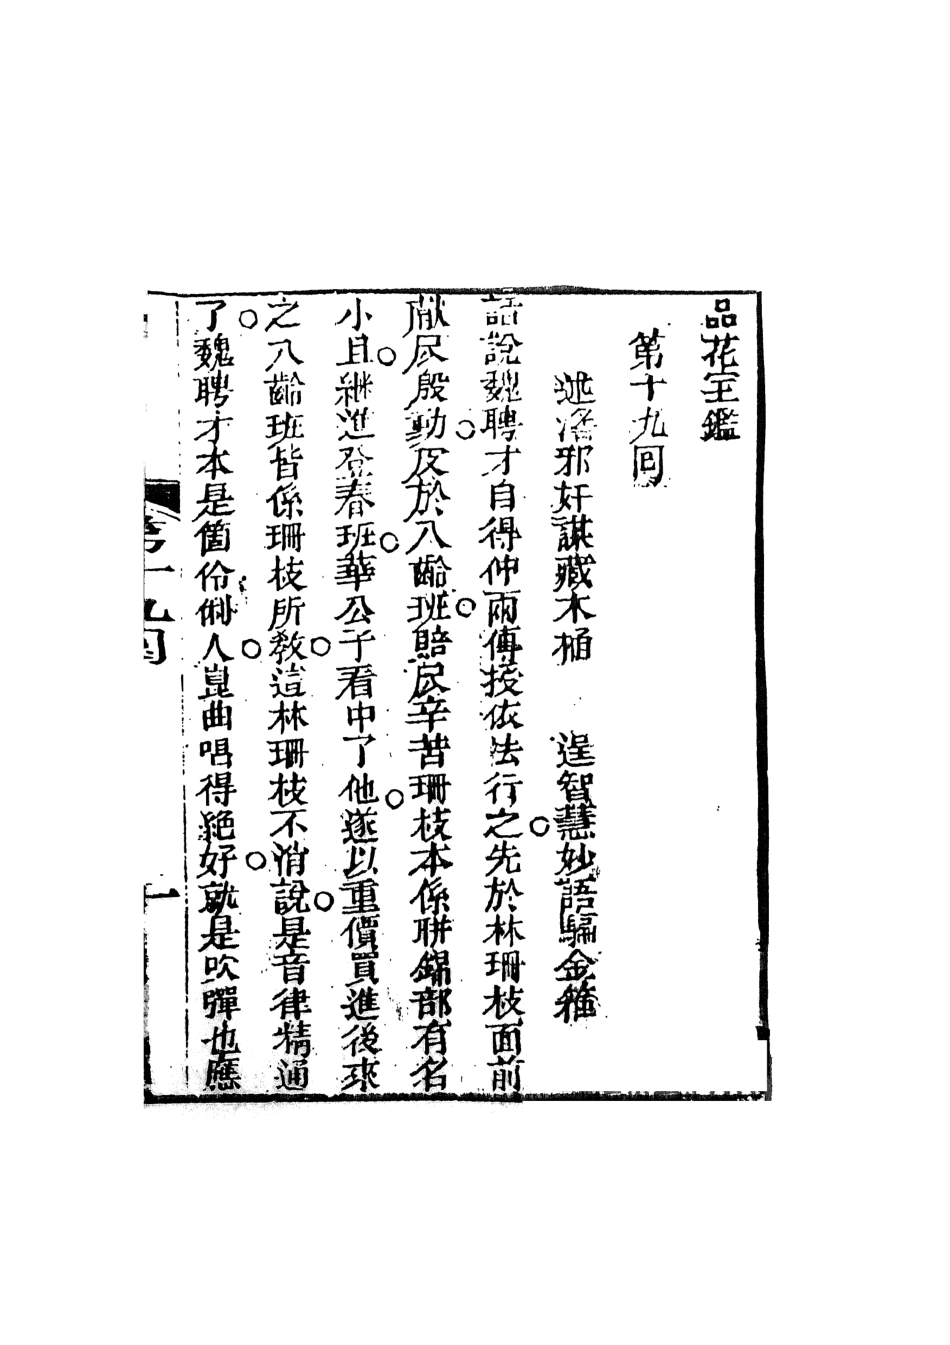 品花寶鑑
第十九回
述淫邪奸謀藏木桶　逞智慧妙語騙金箍
話說魏聘才自得仲雨傳授依法行之○先於林珊枝面前
獻尽殷勤○及於八齡班○賠尽辛苦珊枝本係聯錦部有名
小旦○繼進登春班○華公子看中了他○遂以重價買進後來
之八齡班皆係珊枝所教○這林珊枝不消說○是音律精通
了○魏聘才本是箇伶俐人○崑曲唱得絕好○就是吹彈也應
第十九回
一